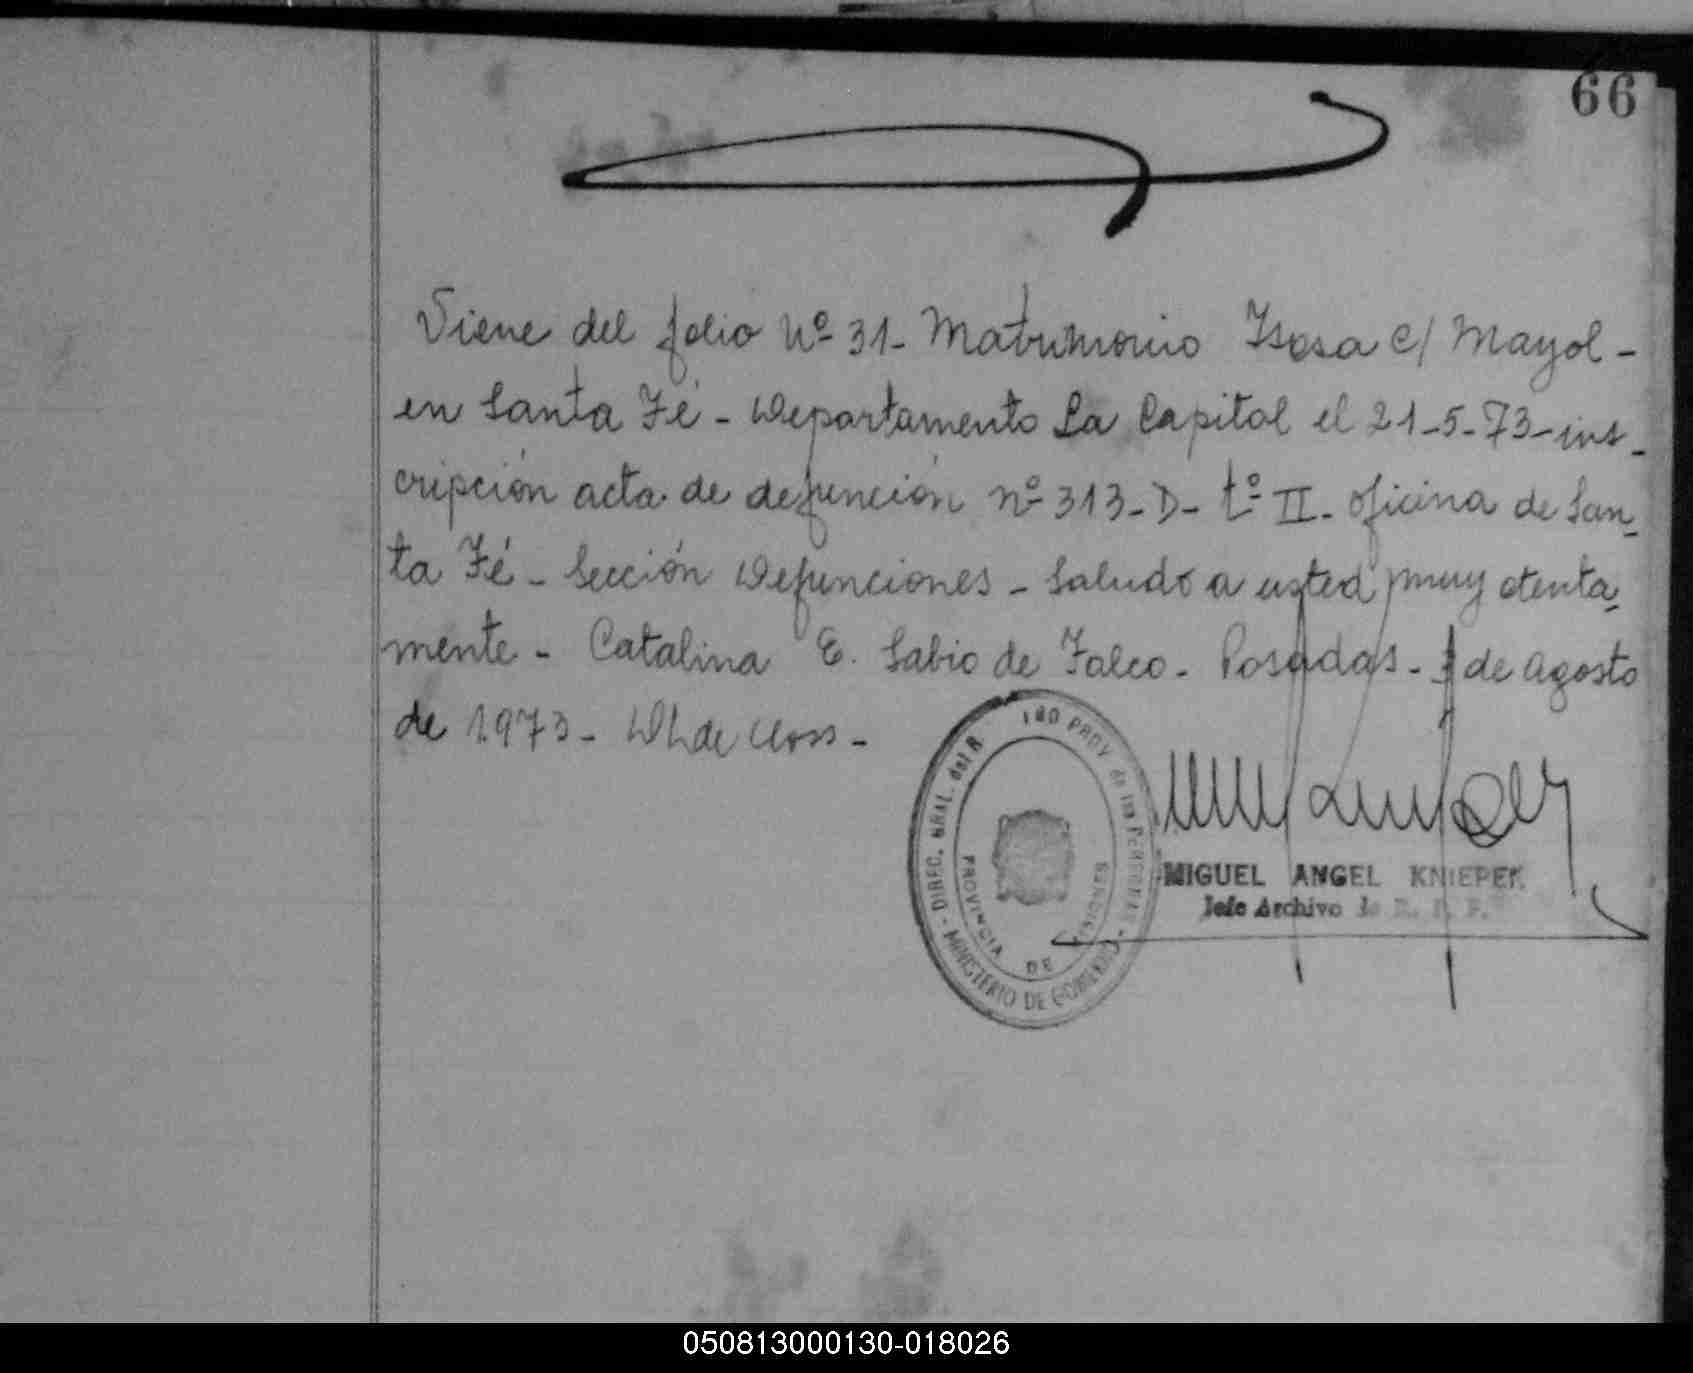 66
Viene del folio Nº 31- Matrimonio Isasa c/ Mayol -
en Santa Fé - Departamento La Capital el 21-5-73- ins-
cripción acta de defunción nº 313-D- tº II- oficina de San-
ta Fé - Sección Defunciones - Saludo a usted muy atenta-
mente - Catalina E. Sabio de Falco - Posadas - de Agosto
de 1973 -
DIREC. GRAL. del R. PROV. de las PERSONAS - MINISTERIO DE GOBIERNO -
PROVINCIA DE MISIONES
MIGUEL ANGEL KNIEPER
Jefe Archivo de R. P. P.
050813000130-018026